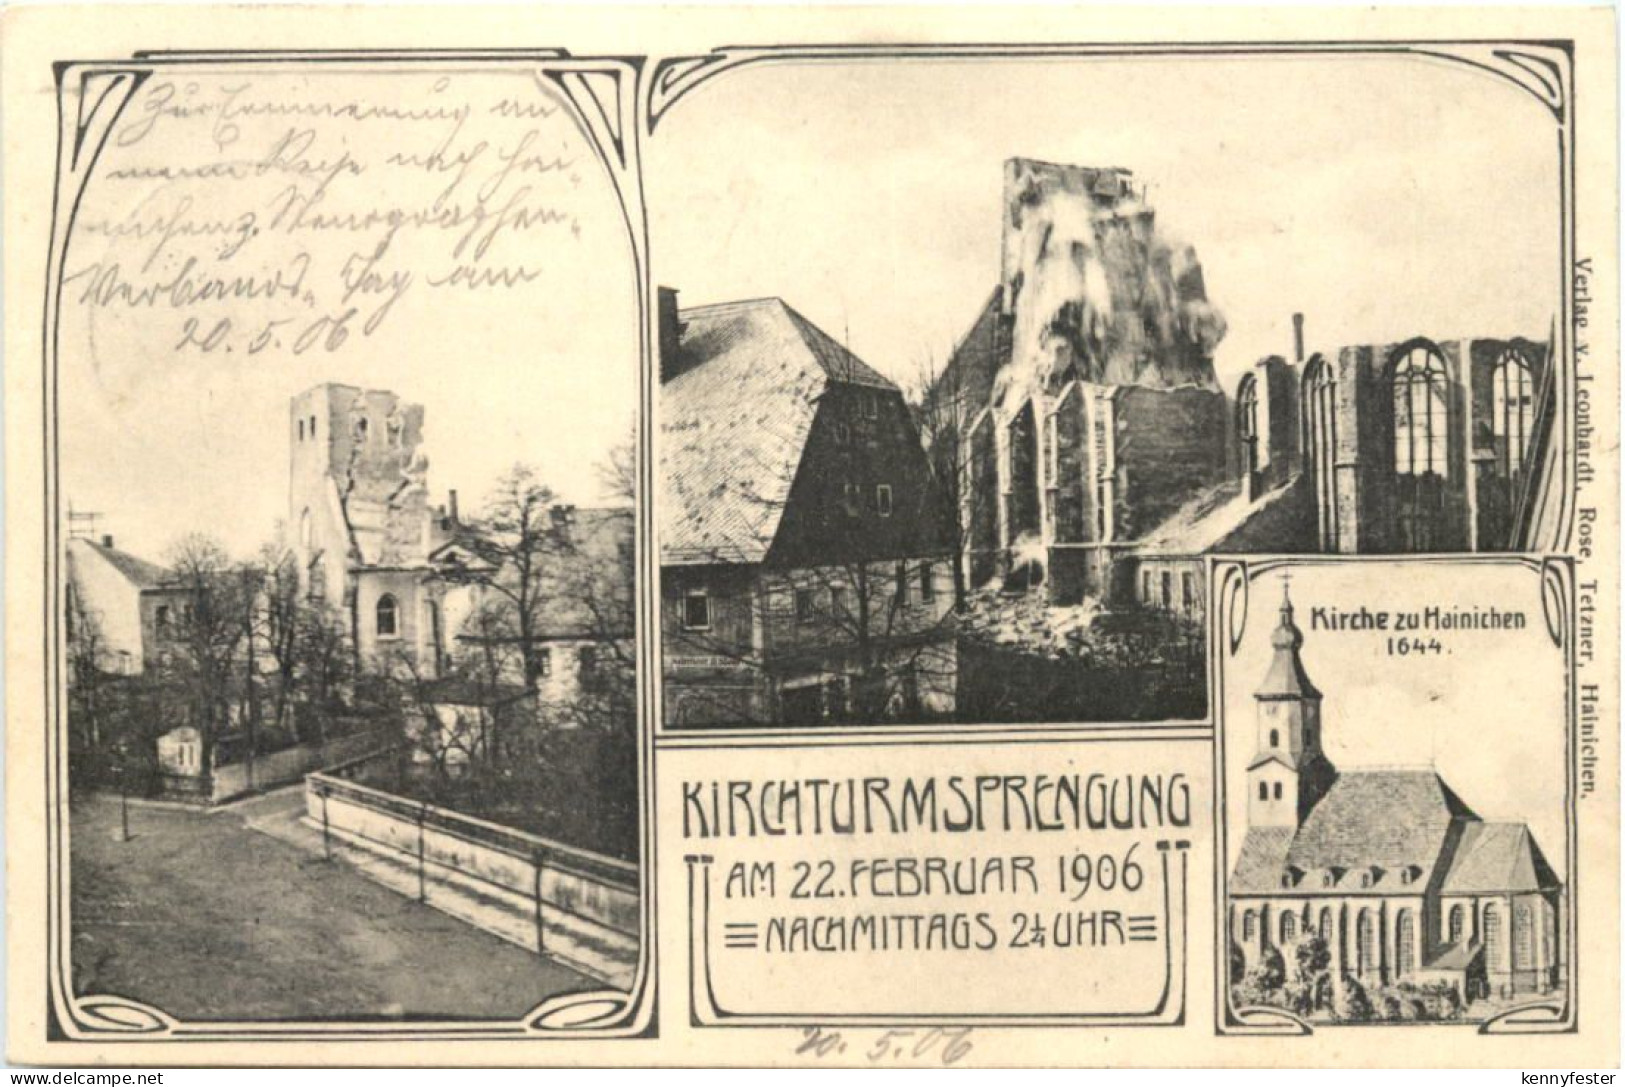 Zur Erinnerung an
meine Reise nach Hai-
nichen z. Stenographen-
Verbands-Tag am
20.5.06
KIRCHTURMSPRENGUNG
AM 22. FEBRUAR 1906
NACHMITTAGS 2¼ UHR
20. 5. 06
Kirche zu Hainichen
1644.
Verlag v. Leonhardt, Rose, Tetzner, Hainichen.
delcampe.net
kennyfester